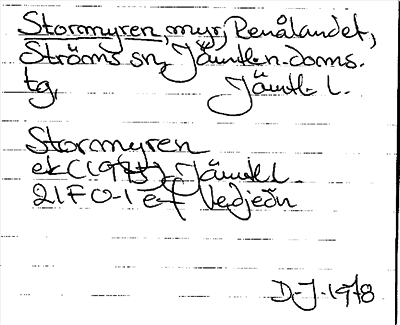 Stormyren, myr, Renålandet,
Ströms sn, Jämtl. n. doms.
tg, Jämtl. l.
Stormyren
ek (1975), Jämtl. l.
21F 0-1 e-f
D-J-1978